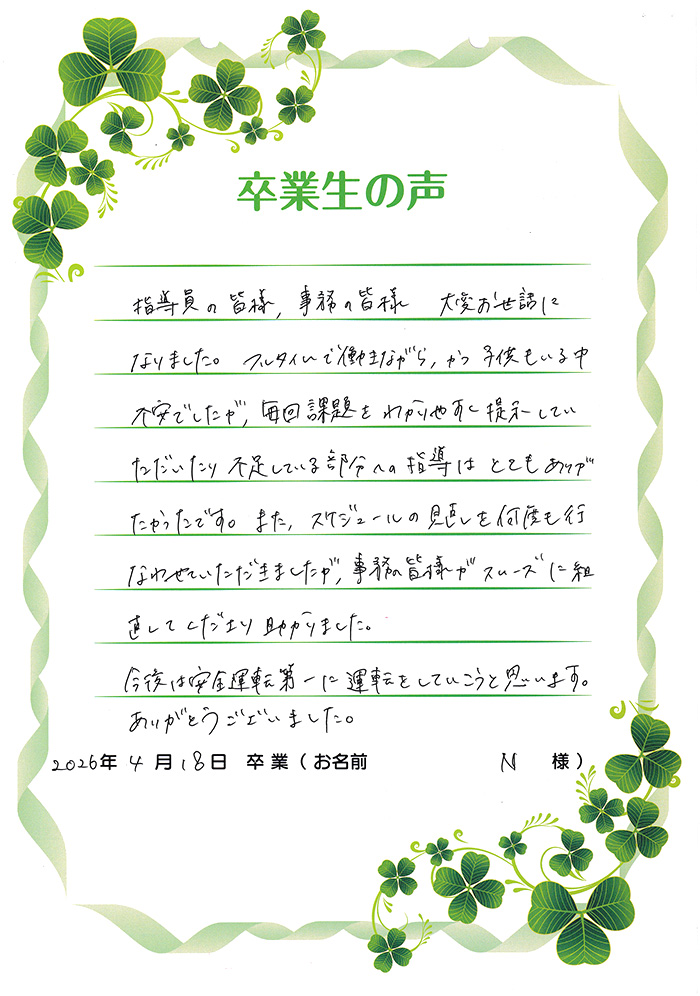 卒業生の声
指導員の皆様, 事務の皆様 大変お世話に
なりました。 フルタイムで働きながら, かつ子供もいる中
不安でしたが, 毎回課題をわかりやすく提示してい
ただいたり不足している部分への指導はとてもありが
たかったです。また, スケジュールの見直しを何度も行
なわせていただきましたが, 事務の皆様がスムーズに組
直してくださり助かりました。
今後は安全運転第一に運転をしていこうと思います。
ありがとうございました。
2026年 4月18日 卒業(お名前 N 様)